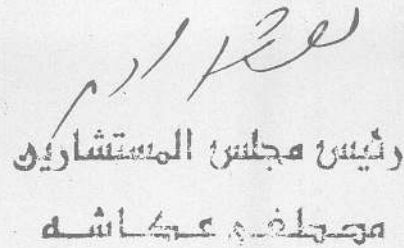 رئيس مجلس المستشارين
مصطفى عكاشه